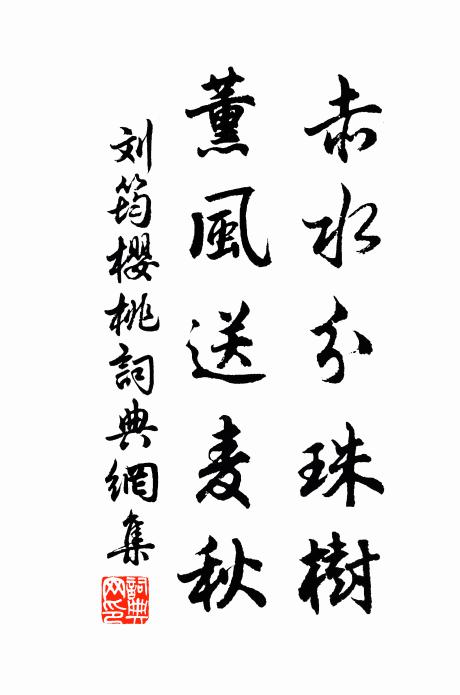 赤水分珠樹
薰風送麦秋
刘筠櫻桃詞典網集
詞典网印